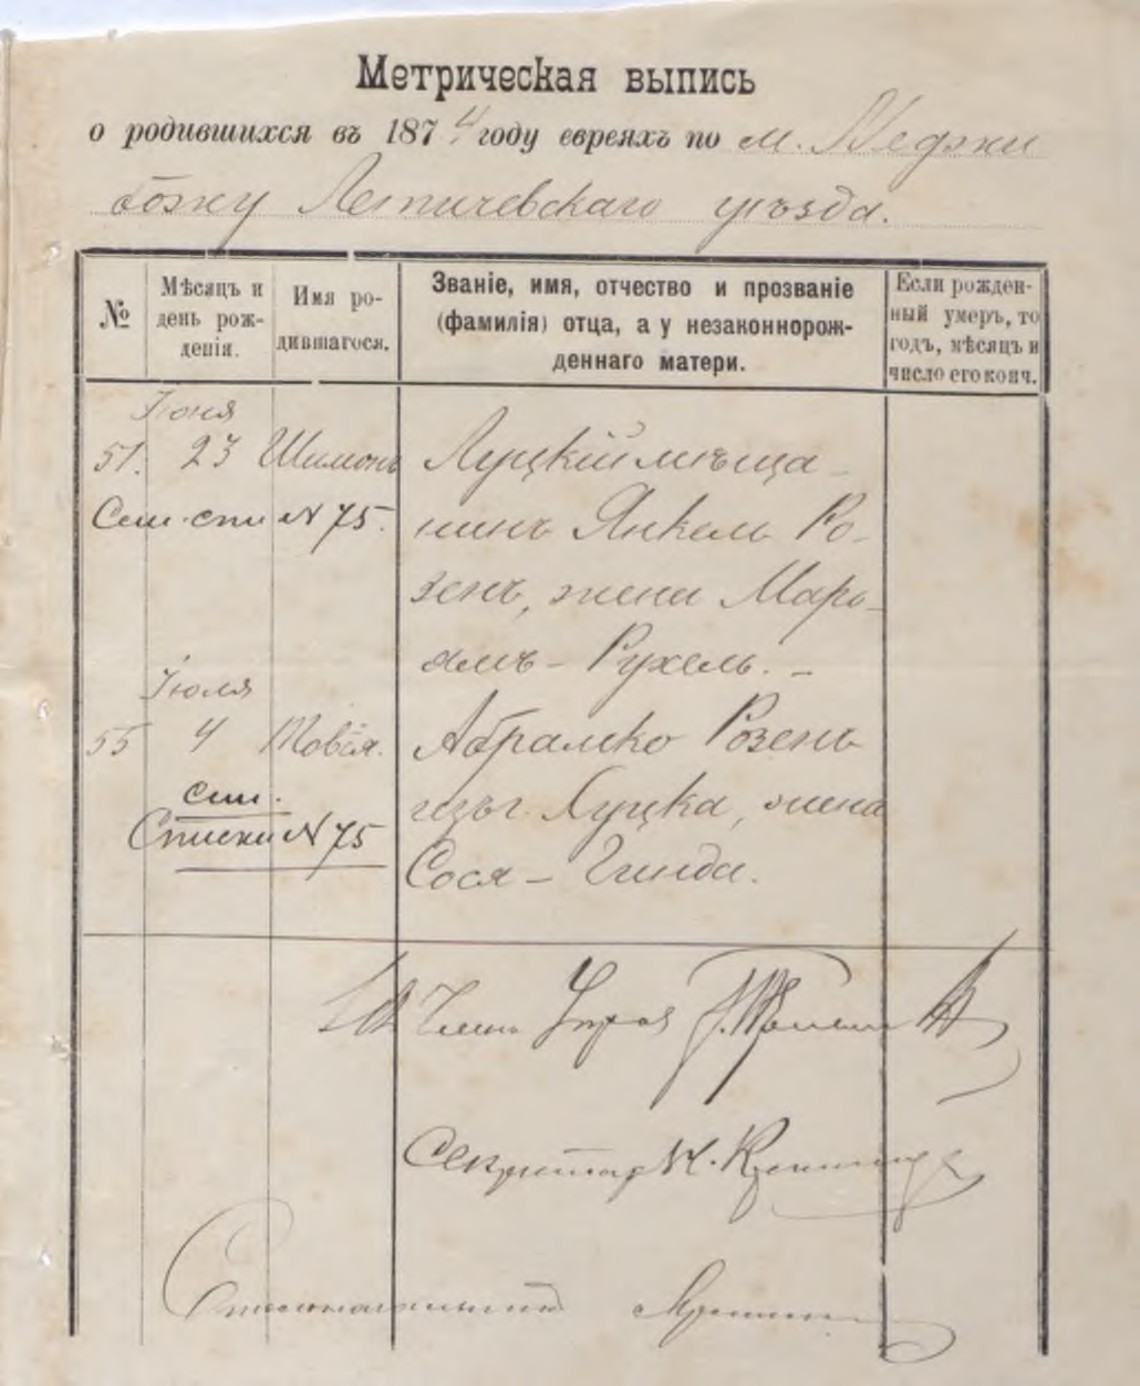 Метрическая выпись
о родившихся въ 1874 году евреяхъ по м. Меджи
божу Летичевскаго уѣзда.
№
Мѣсяцъ и
день рож-
денія.
Имя ро-
дившагося.
Званіе, имя, отчество и прозваніе
(фамилія) отца, а у незаконнорож-
деннаго матери.
Если рожден-
ный умеръ, то
годъ, мѣсяцъ и
число его конч.
Іюня
51. 23 Шимонъ Луцкій мѣща-
Сем. спи № 75. нинъ Янкель Ро-
зенъ, жена Марь-
ямъ - Рухель. -
Іюля
55 4 Товія. Абрамко Розенъ
сем. изъ г. Луцка, жена
Списки № 75 Сося - Гинда.
Членъ Управ
Секретарь
Столоначальникъ